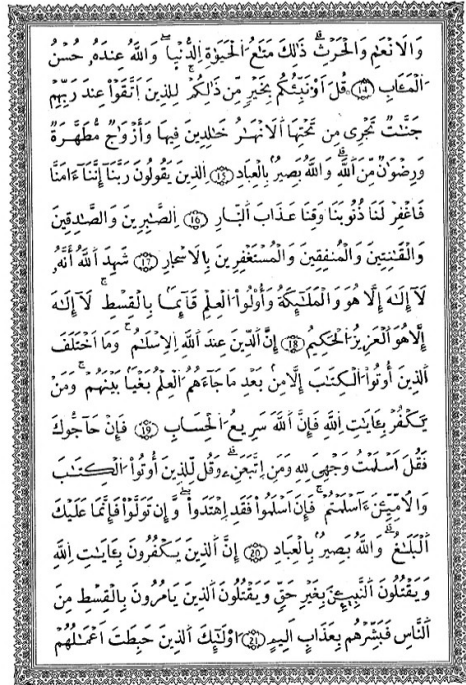 وَالَانْعَٰمِ وَالْحَرْثِۗ ذَٰلِكَ مَتَٰعُ اُلْحَيَوٰةِ اِلدُّنْيَاۖ وَاللَّهُ عِندَهُۥ حُسْنُ
اُلْمَـَٔابِ ١٤ قُلَ اَوْ۬نَبِّئُكُم بِخَيْرٍ مِّن ذَٰلِكُمْۖ لِلذِينَ اَتَّقَوْاْ عِندَ رَبِّهِمْ
جَنَّٰتٌ تَجْرِي مِن تَحْتِهَا اَلَانْهَٰرُ خَٰلِدِينَ فِيهَا وَأَزْوَٰجٌ مُّطَهَّرَةٌ
وَرِضْوَٰنٌ مِّنَ اَللَّهِۗ وَاللَّهُ بَصِيرٌ بِالْعِبَادِ ١٥ اِلذِينَ يَقُولُونَ رَبَّنَا إِنَّنَا ءَامَنَّا
فَاغْفِرْ لَنَا ذُنُوبَنَا وَقِنَا عَذَابَ اَلنّ۪ارِ ١٦ اِلصَّٰبِرِينَ وَالصَّٰدِقِينَ
وَالْقَٰنِتِينَ وَالْمُنفِقِينَ وَالْمُسْتَغْفِرِينَ بِالَاسْح۪ارِ ١٧ شَهِدَ اَللَّهُ أَنَّهُۥ
لَآ إِلَٰهَ إِلَّا هُوَ وَالْمَلَٰٓئِكَةُ وَأُوْلُواْ اُلْعِلْمِ قَآئِماَۢ بِالْقِسْطِۖ لَآ إِلَٰهَ
إِلَّا هُوَ اَلْعَزِيزُ اُلْحَكِيمُ ١٨ إِنَّ اَلدِّينَ عِندَ اَللَّهِ اِلِاسْلَٰمُۖ وَمَا اَخْتَلَفَ
اَلذِينَ أُوتُواْ اُلْكِتَٰبَ إِلَّا مِنۢ بَعْدِ مَا جَآءَهُمُ اُلْعِلْمُ بَغْياَۢ بَيْنَهُمْۖ وَمَنْ
يَّكْفُرْ بِـَٔايَٰتِ اِللَّهِ فَإِنَّ اَللَّهَ سَرِيعُ اُلْحِسَابِ ١٩ فَإِنْ حَآجُّوكَ
فَقُلَ اَسْلَمْتُ وَجْهِيَ لِلهِ وَمَنِ اِتَّبَعَنِۦ وَقُل لِّلذِينَ أُوتُواْ اُلْكِتَٰبَ
وَالُامِّيِّـۧنَ ءَآسْلَمْتُمْۖ فَإِنَ اَسْلَمُواْ فَقَدِ اِهْتَدَواْۖ وَّإِن تَوَلَّوْاْ فَإِنَّمَا عَلَيْكَ
اَلْبَلَٰغُۖ وَاللَّهُ بَصِيرٌ بِالْعِبَادِ ٢٠ إِنَّ اَلذِينَ يَكْفُرُونَ بِـَٔايَٰتِ اِللَّهِ
وَيَقْتُلُونَ اَلنَّبِيٓـِٕينَ بِغَيْرِ حَقٍّ وَيَقْتُلُونَ اَلذِينَ يَامُرُونَ بِالْقِسْطِ مِنَ
اَلنَّاسِ فَبَشِّرْهُم بِعَذَابٍ اَلِيمٍ ٢١ اُوْلَٰٓئِكَ اَلذِينَ حَبِطَتَ اَعْمَٰلُهُمْ